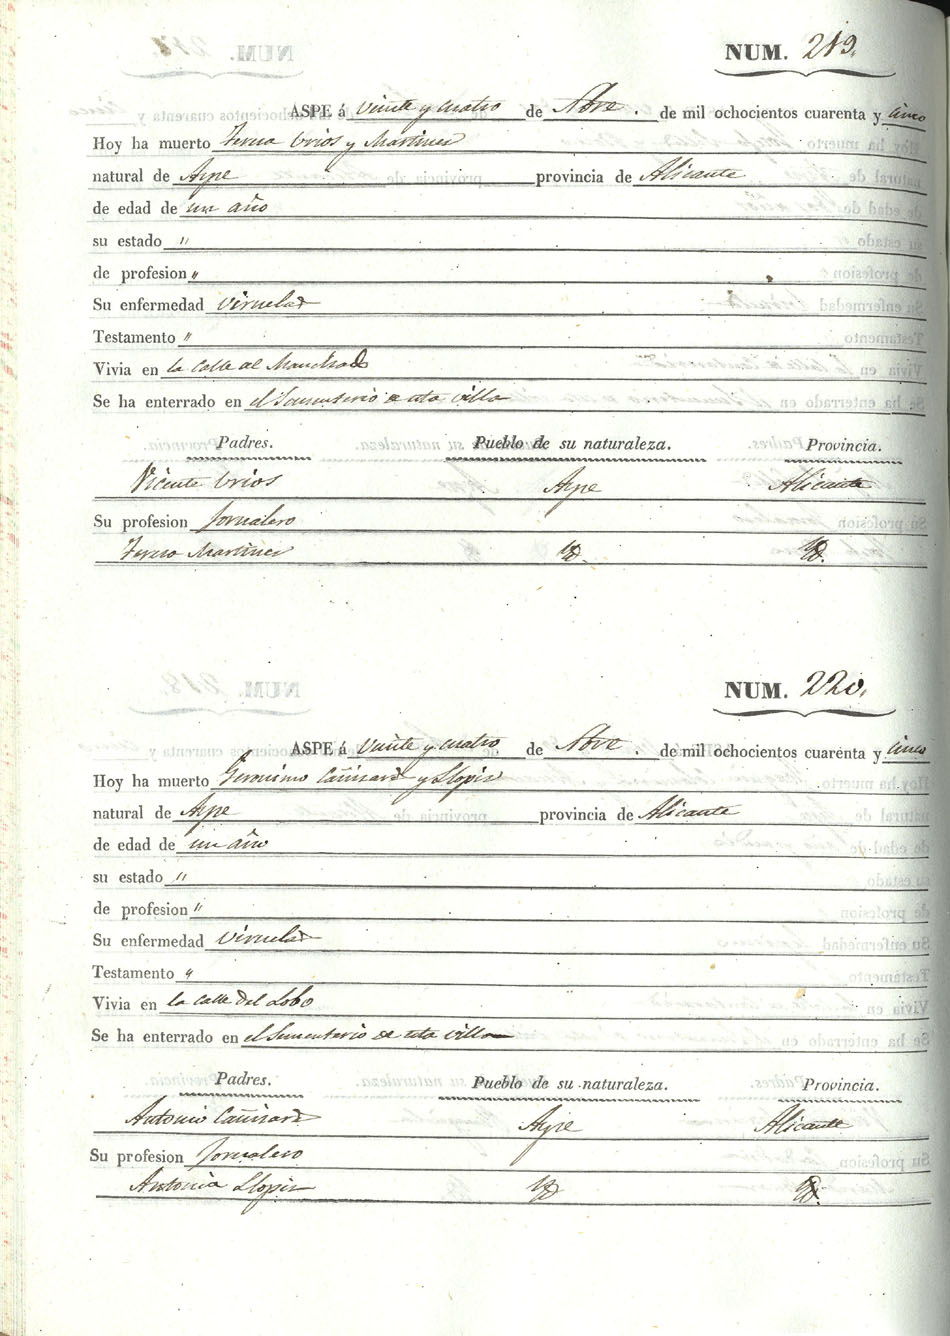 NUM. 219.
ASPE á veinte y cuatro de Nbre. de mil ochocientos cuarenta y cinco
Hoy ha muerto Teresa Urios y Martinez
natural de Aspe provincia de Alicante
de edad de un año
su estado "
de profesion "
Su enfermedad viruelas
Testamento "
Vivia en la calle al
Se ha enterrado en el Sementerio de esta villa
Padres. Pueblo de su naturaleza. Provincia.
Vicente Urios Aspe Alicante
Su profesion Jornalero
Teresa Martinez Yd. Yd.
NUM. 220.
ASPE á veinte y cuatro de Nbre. de mil ochocientos cuarenta y cinco
Hoy ha muerto Geronimo Cañizares y Llopis
natural de Aspe provincia de Alicante
de edad de un año
su estado "
de profesion "
Su enfermedad viruelas
Testamento "
Vivia en la calle del Lobo
Se ha enterrado en el Sementerio de esta villa
Padres. Pueblo de su naturaleza. Provincia.
Antonio Cañizares Aspe Alicante
Su profesion Jornalero
Antonia Llopis Yd Yd.